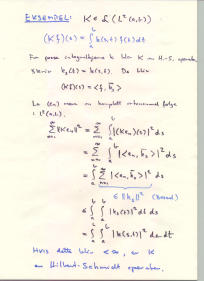 EKSEMPEL: K ∈ L(L²(a,b))
(Kf)(s) = ∫_a^b k(s,t) f(t) dt
For passe integralkjerne k blir K en H.-S. operator.
Skriv k_s(t) = k(s,t). Da blir
(Kf)(s) = <f, \overline{k_s}>
La (e_n) være en komplett ortonormal følge
i L²(a,b).
∑_{n=1}^∞ ||Ke_n||² = ∑_{n=1}^∞ ∫_a^b |(Ke_n)(s)|² ds
= ∑_{n=1}^∞ ∫_a^b |<e_n, \overline{k_s}>|² ds
= ∫_a^b ∑_{n=1}^∞ |<e_n, \overline{k_s}>|² ds
≤ ||k_s||² (Bessel)
≤ ∫_a^b ∫_a^b |k_s(t)|² dt ds
= ∫_a^b ∫_a^b |k(s,t)|² ds dt
Hvis dette blir < ∞, er K
en Hilbert-Schmidt operator.